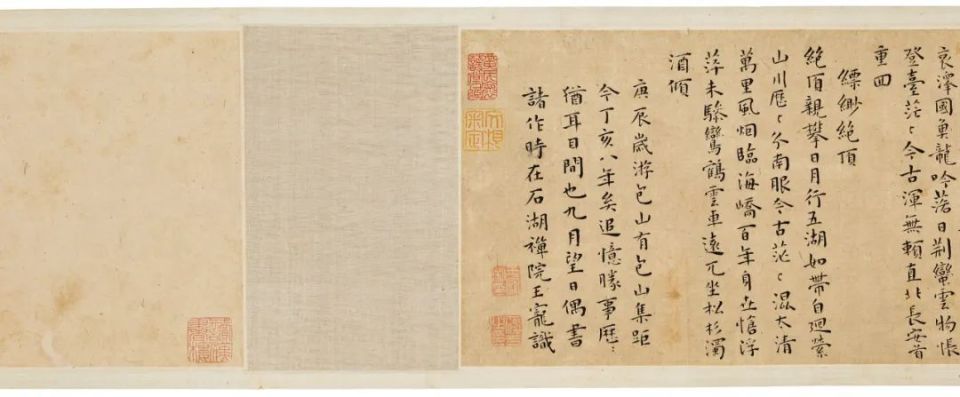 哀澤國魚龍吟落日荆蠻雲物悵
登臺茫々今古渾無賴直北長安首
重囬
縹緲絶頂
絶頂親攀日月行五湖如帶自廻縈
山川歷々分南眼今古茫々混太清
萬里風烟臨海嶠百年身世愴浮
萍未驂鸞鶴雲車遠兀坐松杉濁
酒傾
庚辰歲游包山有包山集距
今丁亥八年矣追憶勝事歷々
猶耳目間也九月望日偶書
諸作時在石湖禪院王寵識